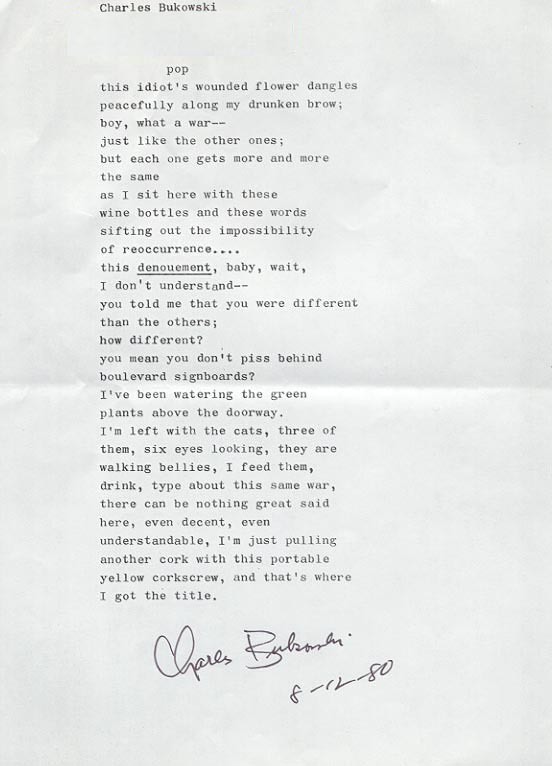 Charles Bukowski
pop
this idiot's wounded flower dangles
peacefully along my drunken brow;
boy, what a war--
just like the other ones;
but each one gets more and more
the same
as I sit here with these
wine bottles and these words
sifting out the impossibility
of reoccurrence....
this denouement, baby, wait,
I don't understand--
you told me that you were different
than the others;
how different?
you mean you don't piss behind
boulevard signboards?
I've been watering the green
plants above the doorway.
I'm left with the cats, three of
them, six eyes looking, they are
walking bellies, I feed them,
drink, type about this same war,
there can be nothing great said
here, even decent, even
understandable, I'm just pulling
another cork with this portable
yellow corkscrew, and that's where
I got the title.
Charles Bukowski
8-12-80